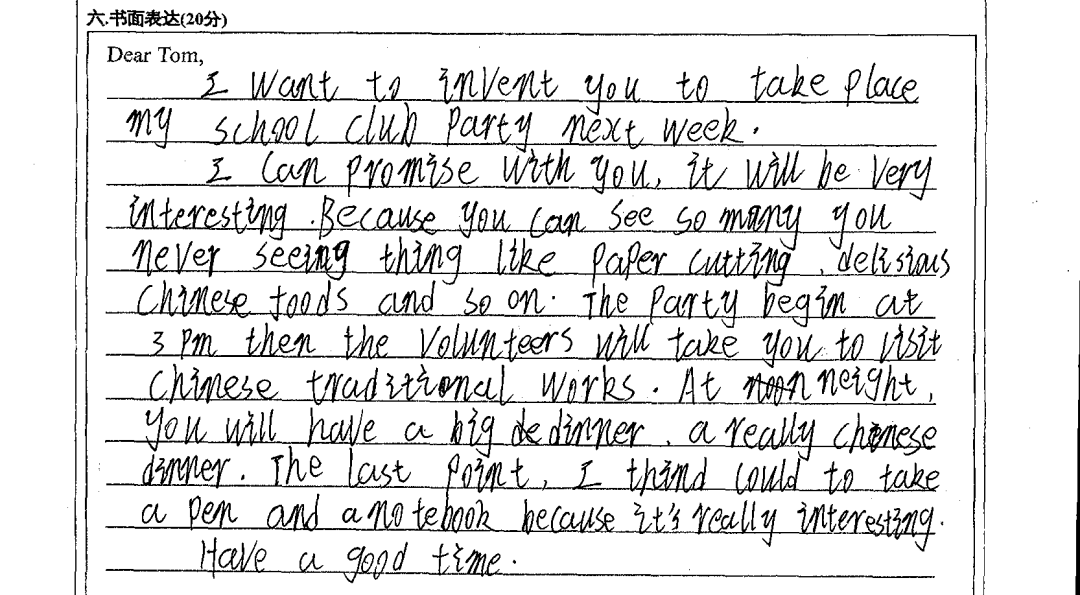 六.书面表达(20分)
Dear Tom,
I want to invent you to take place
my school club party next week.
I can promise with you, it will be very
interesting. Because you can see so many you
never seeing thing like paper cutting, delisious
chinese foods and so on. The party begin at
3 pm then the volunteers will take you to visit
chinese traditional works. At noon neight,
you will have a big de dinner, a really chinese
dinner. The last point, I thind could to take
a pen and a notebook because it's really interesting.
Have a good time.